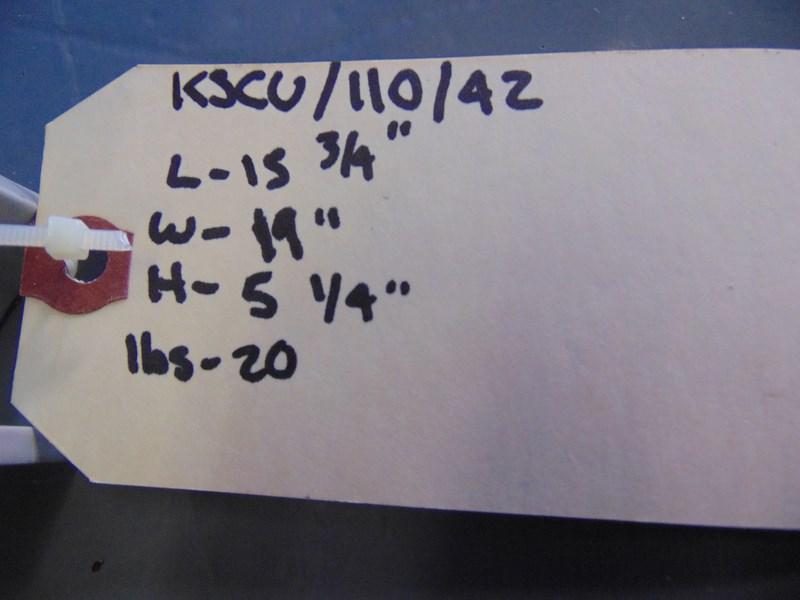 KSCU/110/42
L-15 3/4"
W-19"
H-5 1/4"
lbs-20